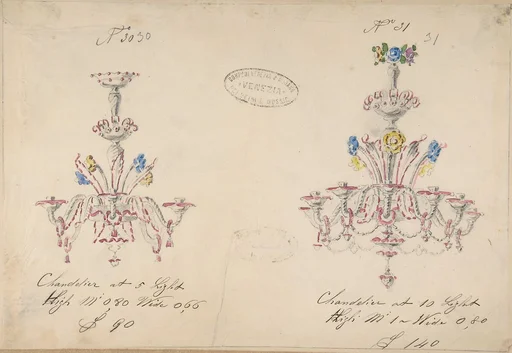 No 3030
No 31
31
VENEZIA
Chandelier at 5 Light
High Mt 0,80 Wide 0,66
£ 90
Chandelier at 10 Light
High Mt 1 " Wide 0,80
£ 140